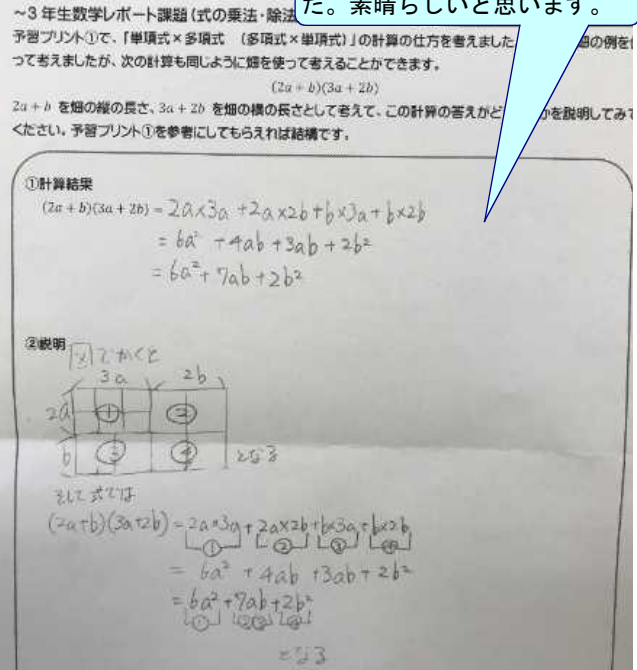 た。素晴らしいと思います。
～3年生数学レポート課題（式の乗法・除法
予習プリント①で、「単項式×多項式　（多項式×単項式）」の計算の仕方を考えました
畑の例を使
って考えましたが、次の計算も同じように畑を使って考えることができます。
(2a + b)(3a + 2b)
2a + b を畑の縦の長さ、3a + 2b を畑の横の長さとして考えて、この計算の答えがど
かを説明してみて
ください。予習プリント①を参考にしてもらえれば結構です。
①計算結果
(2a + b)(3a + 2b) = 2a×3a + 2a×2b + b×3a + b×2b
= 6a² + 4ab + 3ab + 2b²
= 6a² + 7ab + 2b²
②説明
図でかくと
3a 2b
2a ① ②
b ③ ④ となる
そして式では
(2a+b)(3a+2b) = 2a×3a + 2a×2b + b×3a + b×2b
① ② ③ ④
= 6a² + 4ab + 3ab + 2b²
= 6a² + 7ab + 2b²
① ②③ ④
となる